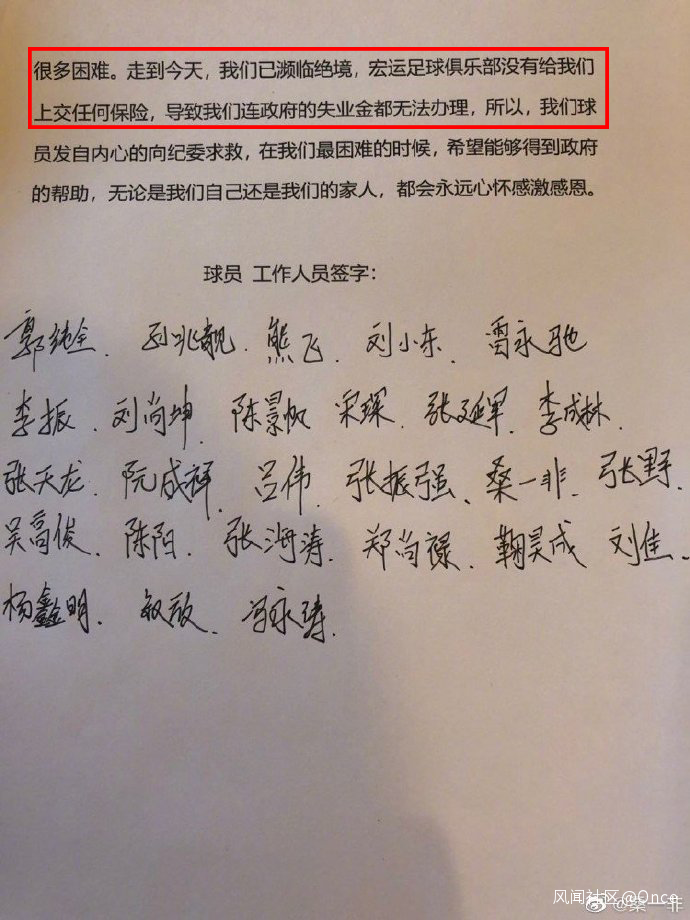 很多困难。走到今天，我们已濒临绝境，宏运足球俱乐部没有给我们
上交任何保险，导致我们连政府的失业金都无法办理，所以，我们球
员发自内心的向纪委求救，在我们最困难的时候，希望能够得到政府
的帮助，无论是我们自己还是我们的家人，都会永远心怀感激感恩。
球员 工作人员签字：
郭纯全. 孙兆靓. 熊飞. 刘小东. 雷永驰
李振. 刘尚坤. 陈景帆 宋琛. 张延军. 李成林.
张天龙. 阮成祥. 吕伟. 张振强、桑一非. 张野.
吴高俊. 陈阳. 张海涛. 郑尚禄. 鞠昊成 刘佳.
杨鑫明. 冯永涛.
风闻社区@Once
@桑一非